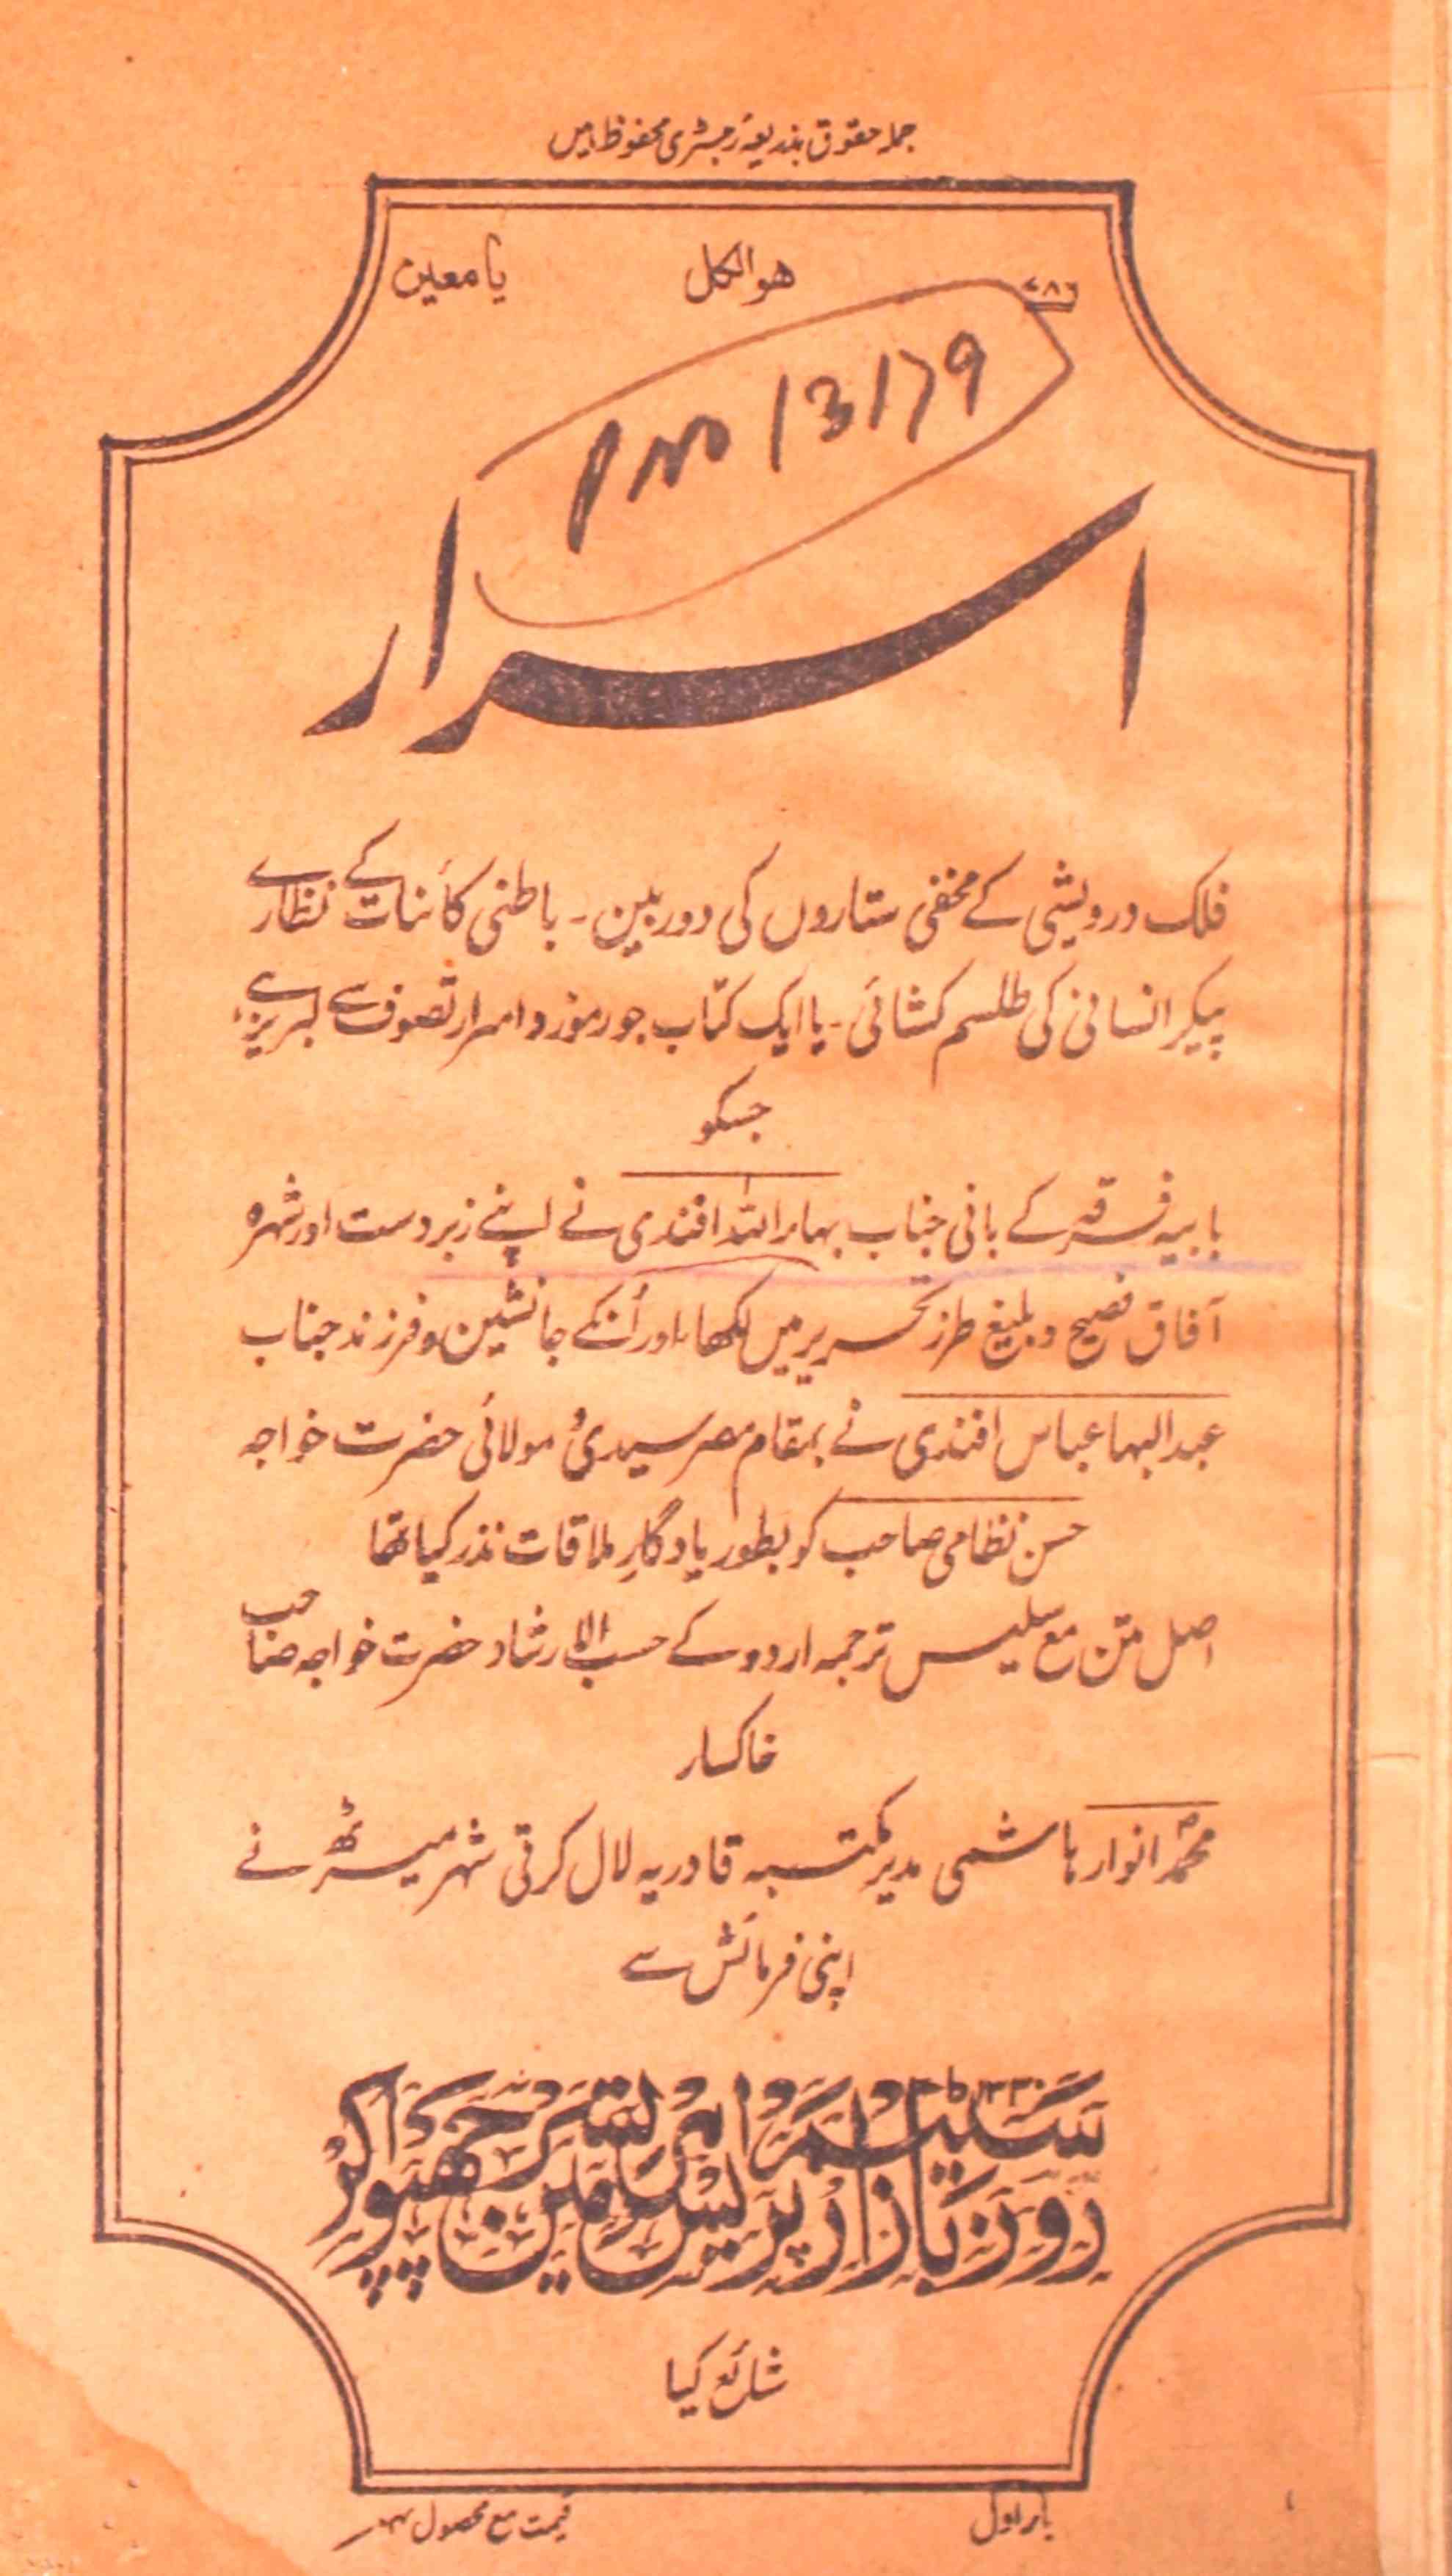 جملہ حقوق بذریعۂ رجسٹری محفوظ ہیں
۷۸۶ ھوالکل یا معین
P no 13179
اسرار
فلک درویشی کے مخفی ستاروں کی دوربین۔ باطنی کائنات کے نظارے
پیکر انسانی کی طلسم کشائی۔ یا ایک کتاب جو رموز و اسرار تصوف سے لبریز ہے
جسکو
بابیہ فرقہ کے بانی جناب بہاء اللہ افندی نے اپنے زبردست اور شہرہ
آفاق فصیح و بلیغ طرز تحریر میں لکھا، اور اُنکے جانشین و فرزند جناب
عبد البہا عباس افندی نے بمقام مصر سیدی و مولائی حضرت خواجہ
حسن نظامی صاحب کو بطور یادگارِ ملاقات نذر کیا تھا
اصل متن مع سلیس ترجمہ اردو کے حسب الارشاد حضرت خواجہ صاحب
خاکسار
محمد انوار ہاشمی مدیر مکتبہ قادریہ لال کرتی شہر میرٹھ نے
اپنی فرمائش سے
۱۳۳۰ھ
روز بازار سٹیم پریس امرتسر میں چھپوا کر
شائع کیا
بار اول
قیمت مع محصول